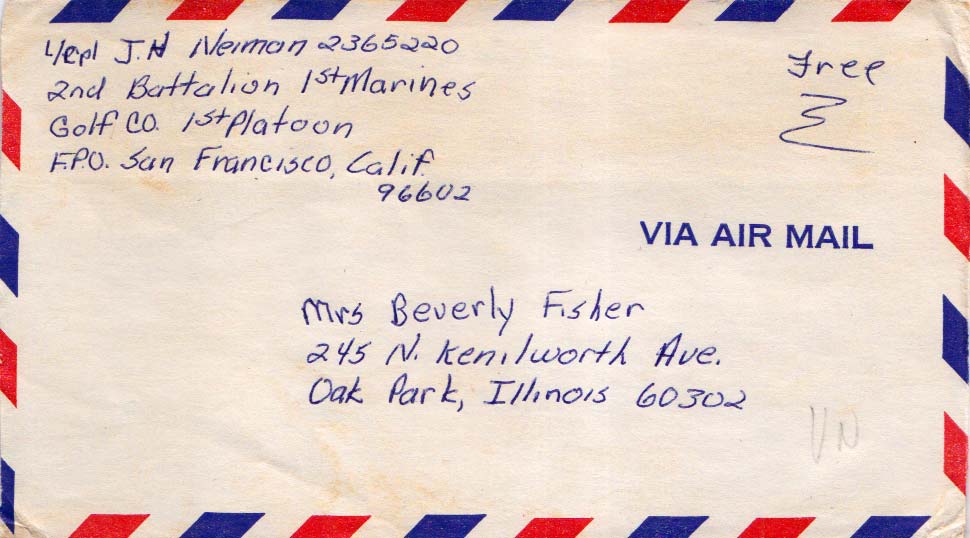 L/cpl J.H Neiman 2365220
2nd Battalion 1st Marines
Golf CO. 1st Platoon
F.P.O. San Francisco, Calif.
96602
Free
VIA AIR MAIL
Mrs Beverly Fisher
245 N. Kenilworth Ave.
Oak Park, Illinois 60302
VN